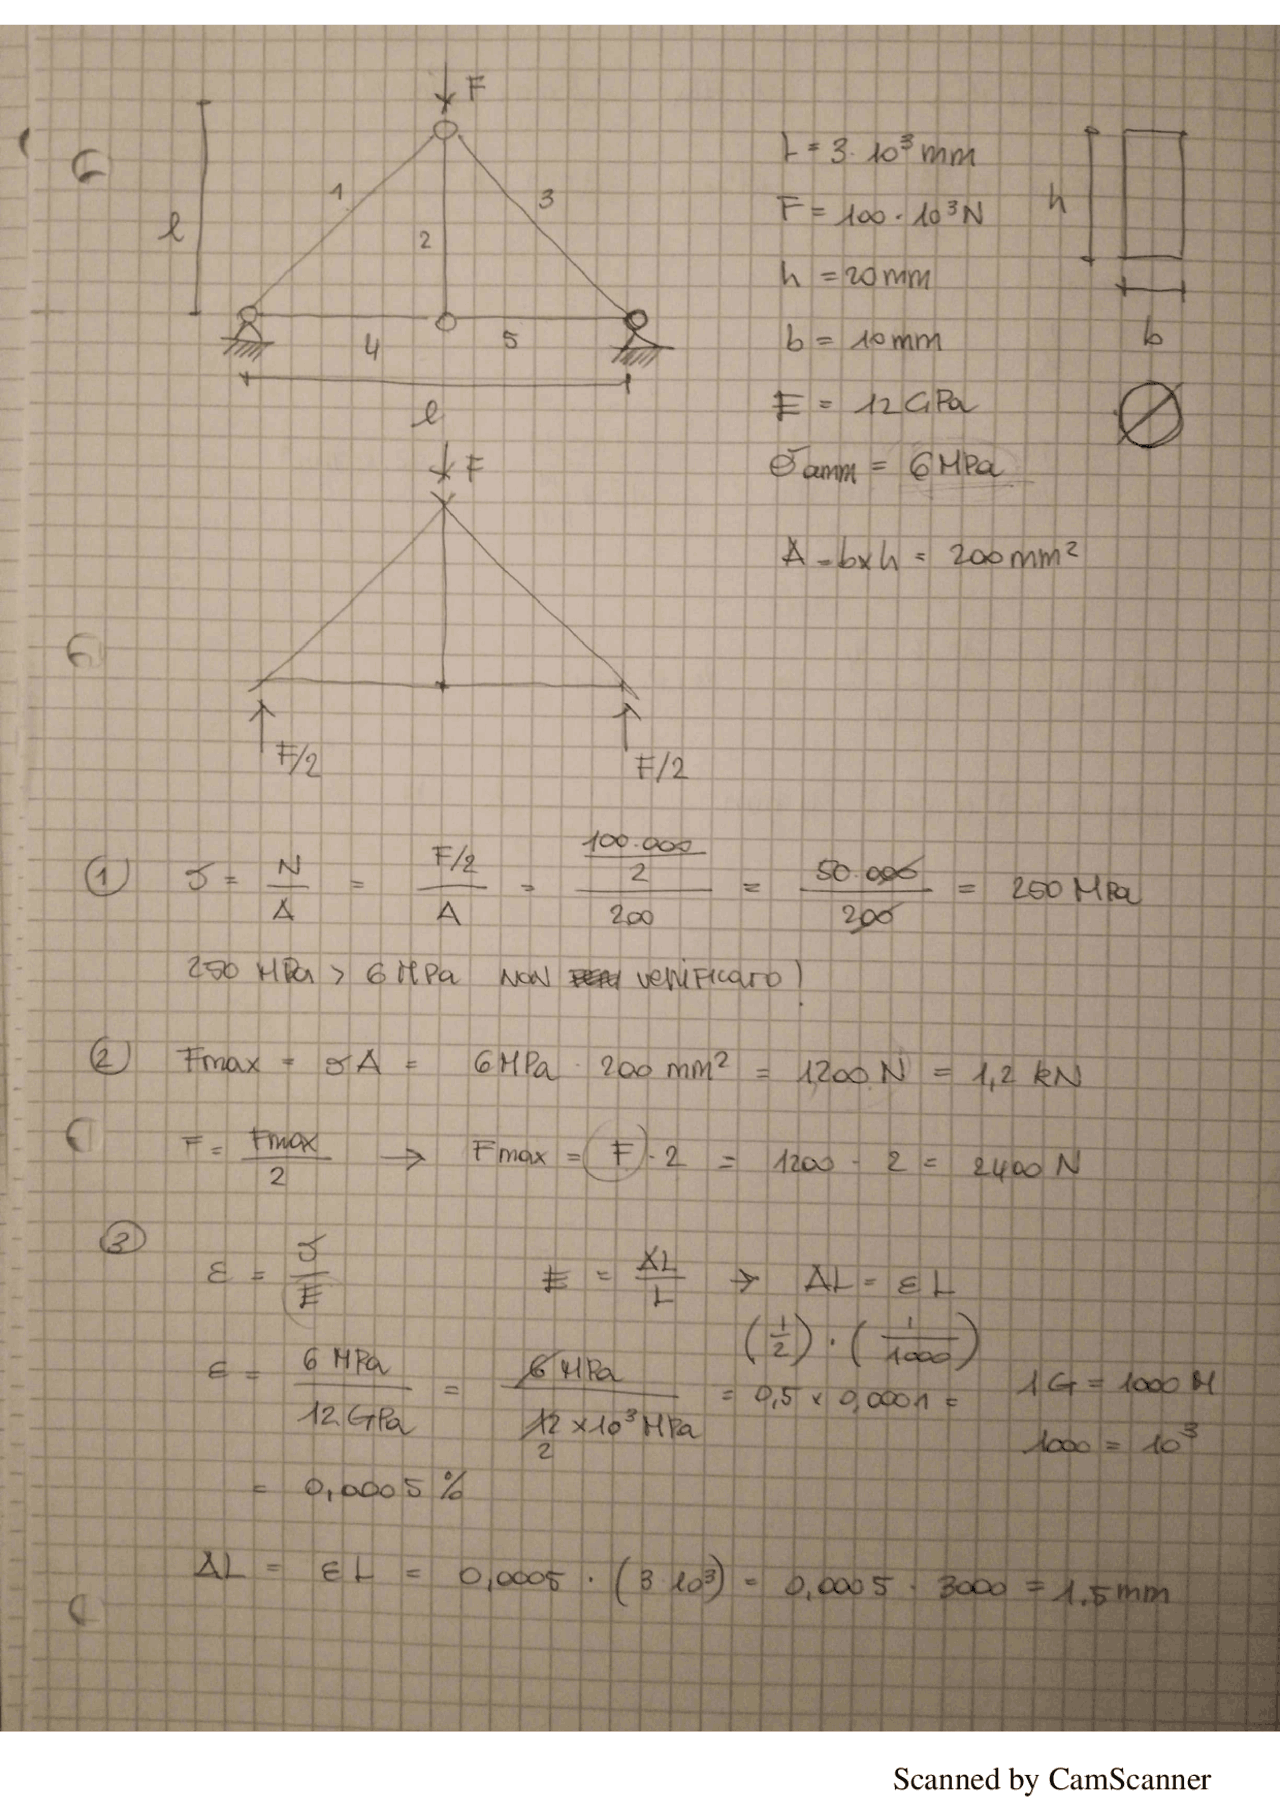 F
1
2
3
l
4
5
l
L = 3 · 10³ mm
F = 100 · 10³ N
h = 20 mm
b = 10 mm
E = 12 GPa
σamm = 6 MPa
A = b x h = 200 mm²
h
b
F
F/2
F/2
① σ = N/A = (F/2)/A = (100.000/2)/200 = 50.000/200 = 250 MPa
250 MPa > 6 MPa NON verificato!
② Fmax = σA = 6 MPa · 200 mm² = 1200 N = 1,2 kN
F = Fmax/2 → Fmax = F · 2 = 1200 · 2 = 2400 N
③ ε = σ/E E = ΔL/L → ΔL = εL
(1/2) · (1/1000)
ε = 6 MPa/12 GPa = 6 MPa/12 x 10³ MPa = 0,5 x 0,0001 =
2
1G = 1000 M
1000 = 10³
= 0,0005 %
ΔL = εL = 0,0005 · (3 · 10³) = 0,0005 · 3000 = 1.5 mm
Scanned by CamScanner